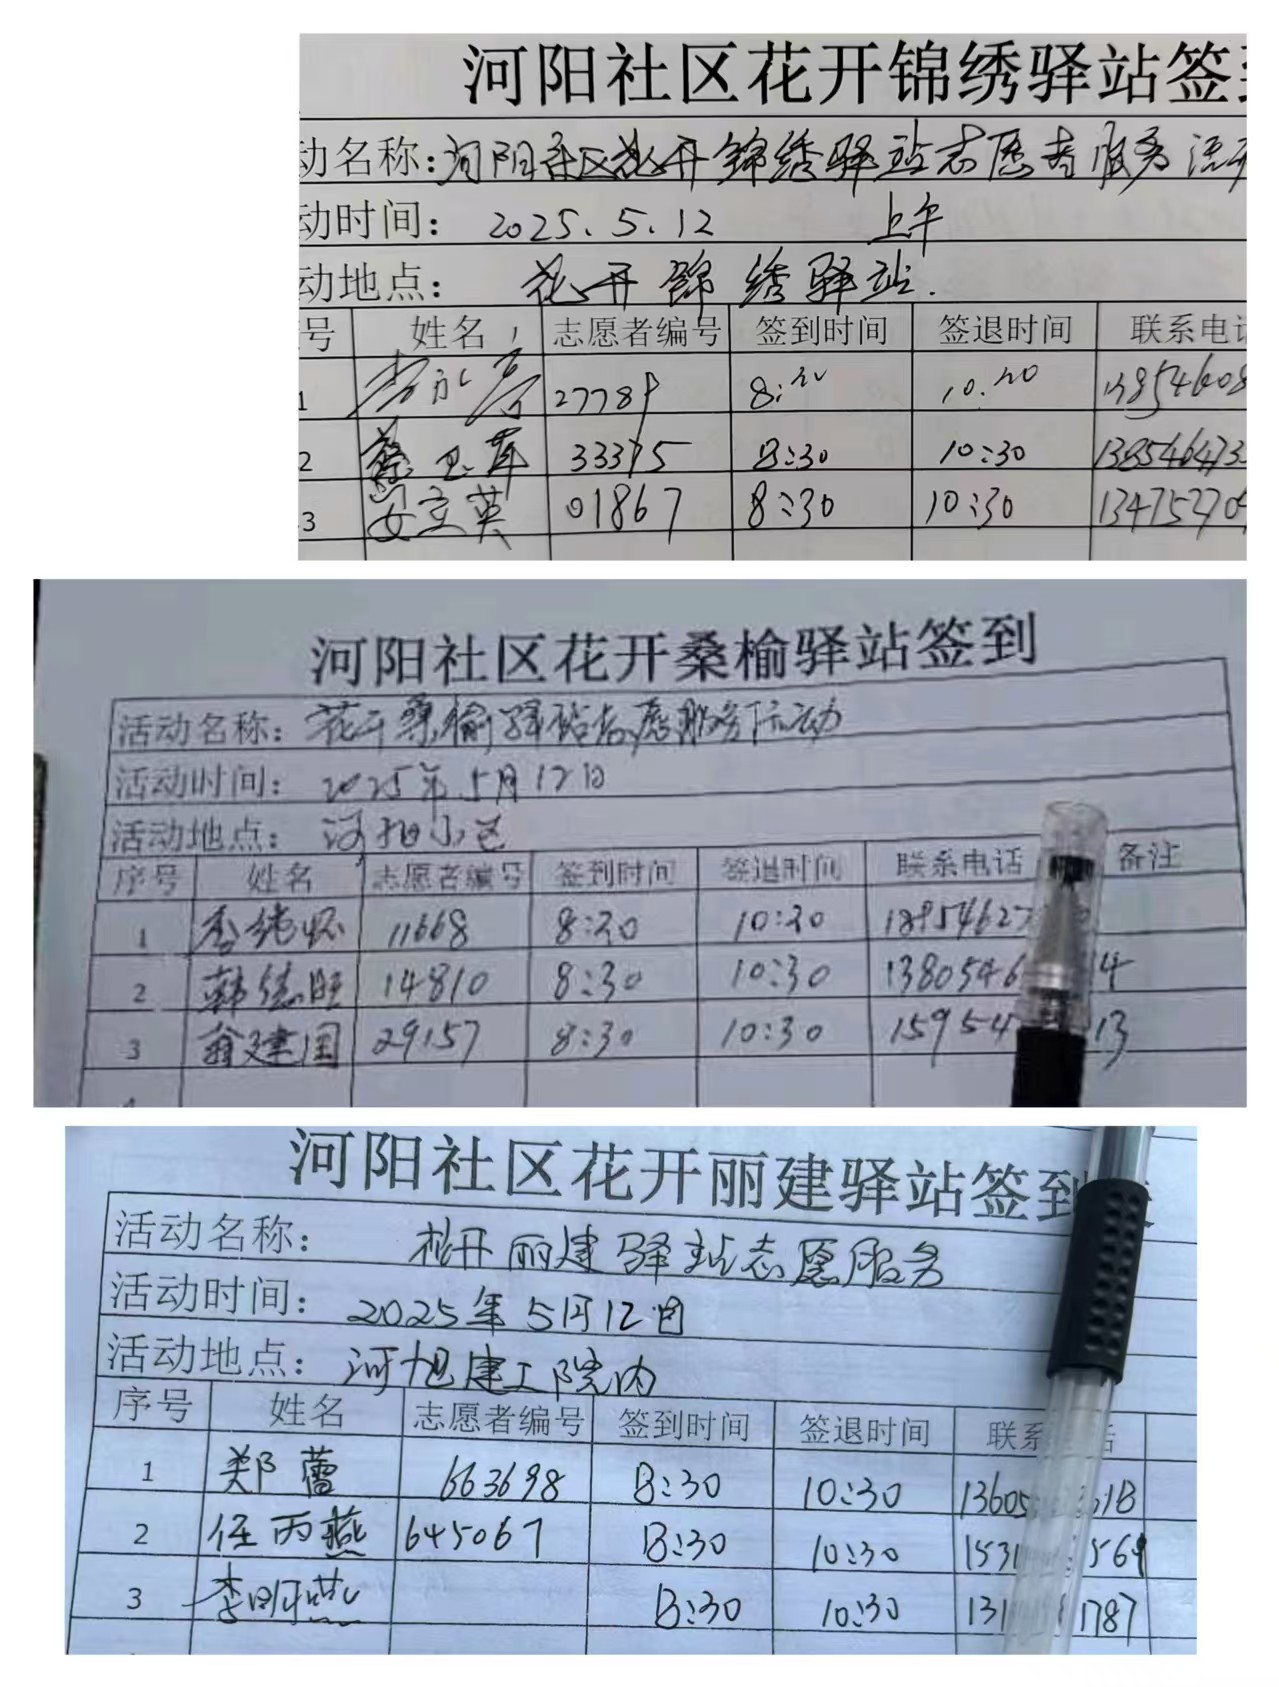 河阳社区花开锦绣驿站签
动名称：河阳社区花开锦绣驿站志愿者服务活动
动时间： 2025.5.12 上午
动地点： 花开锦绣驿站.
号 姓名 志愿者编号 签到时间 签退时间 联系电话
1 8:30 10:30
2 蔡卫革 33375 8:30 10:30
3 安立英 01867 8:30 10:30
河阳社区花开桑榆驿站签到
活动名称： 花开桑榆驿站志愿服务活动
活动时间： 2025年5月12日
活动地点： 河阳小区
序号 姓名 志愿者编号 签到时间 签退时间 联系电话 备注
1 11668 8:30 10:30
2 韩德旺 14810 8:30 10:30 1380546 4
3 翁建国 29157 8:30 10:30 15954 13
河阳社区花开丽建驿站签到
活动名称： 花开丽建驿站志愿服务
活动时间： 2025年5月12日
活动地点： 河旭建工院内
序号 姓名 志愿者编号 签到时间 签退时间 联系 话
1 郑蕾 663698 8:30 10:30 13605
2 任丙燕 645067 8:30 10:30 1531 569
3 李明燕 8:30 10:30 131 1787